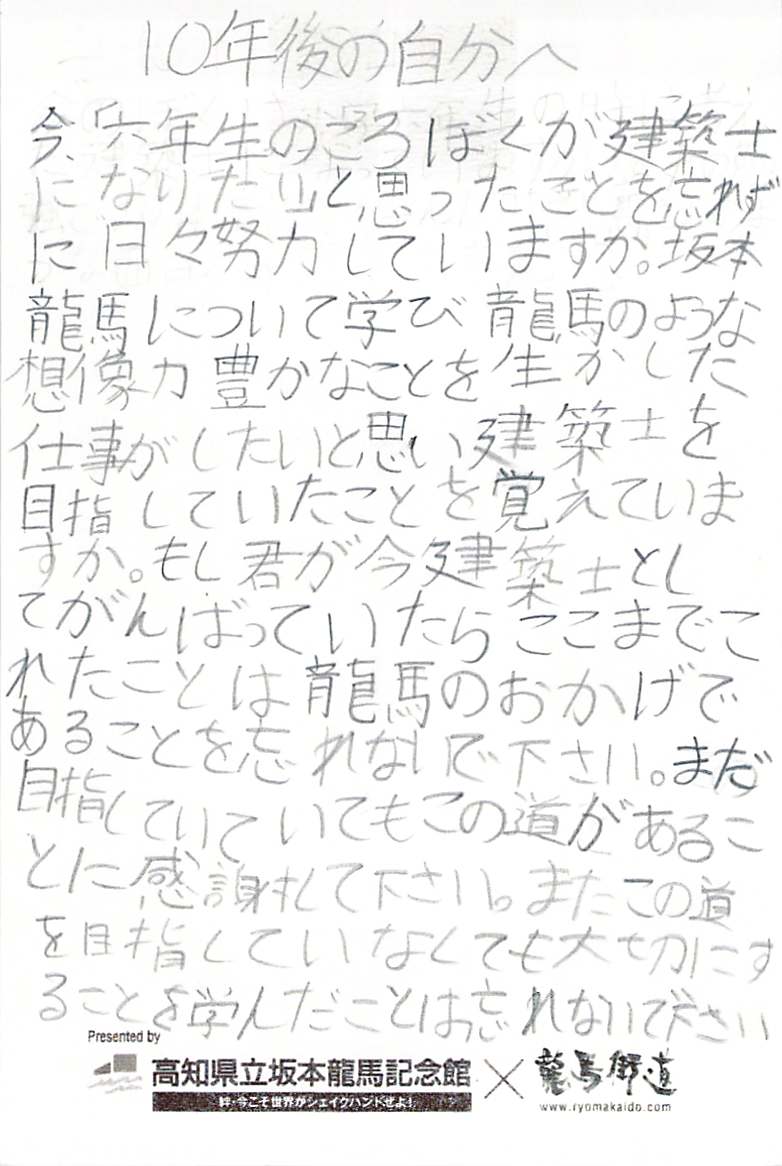 10年後の自分へ
今「六年生のころぼくが建築士
になりたい」と思ったことを忘れず
に日々努力していますか。坂本
龍馬について学び龍馬のような
想像力豊かなことを生かした
仕事がしたいと思い建築士を
目指していたことを覚えていま
すか。もし君が今建築士とし
てがんばっていたらここまでこ
れたことは龍馬のおかげで
あることを忘れないで下さい。まだ
目指していていてもこの道があるこ
とに感謝して下さい。またこの道
を目指していなくても大切にす
ることを学んだことは忘れないで下さい
Presented by
高知県立坂本龍馬記念館×龍馬街道
絆・今こそ世界がシェイクハンドぜよ!
www.ryomakaido.com